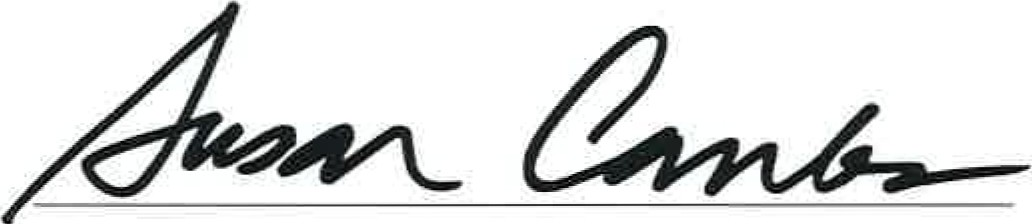 Susan Combs